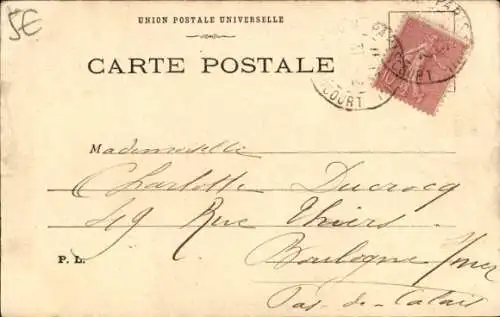 5E
UNION POSTALE UNIVERSELLE
CARTE POSTALE
PARIS
COURT
10
Mademoiselle
Charlotte Ducrocq
49 Rue Thiers
Boulogne s/mer
P. L.
Pas-de-Calais